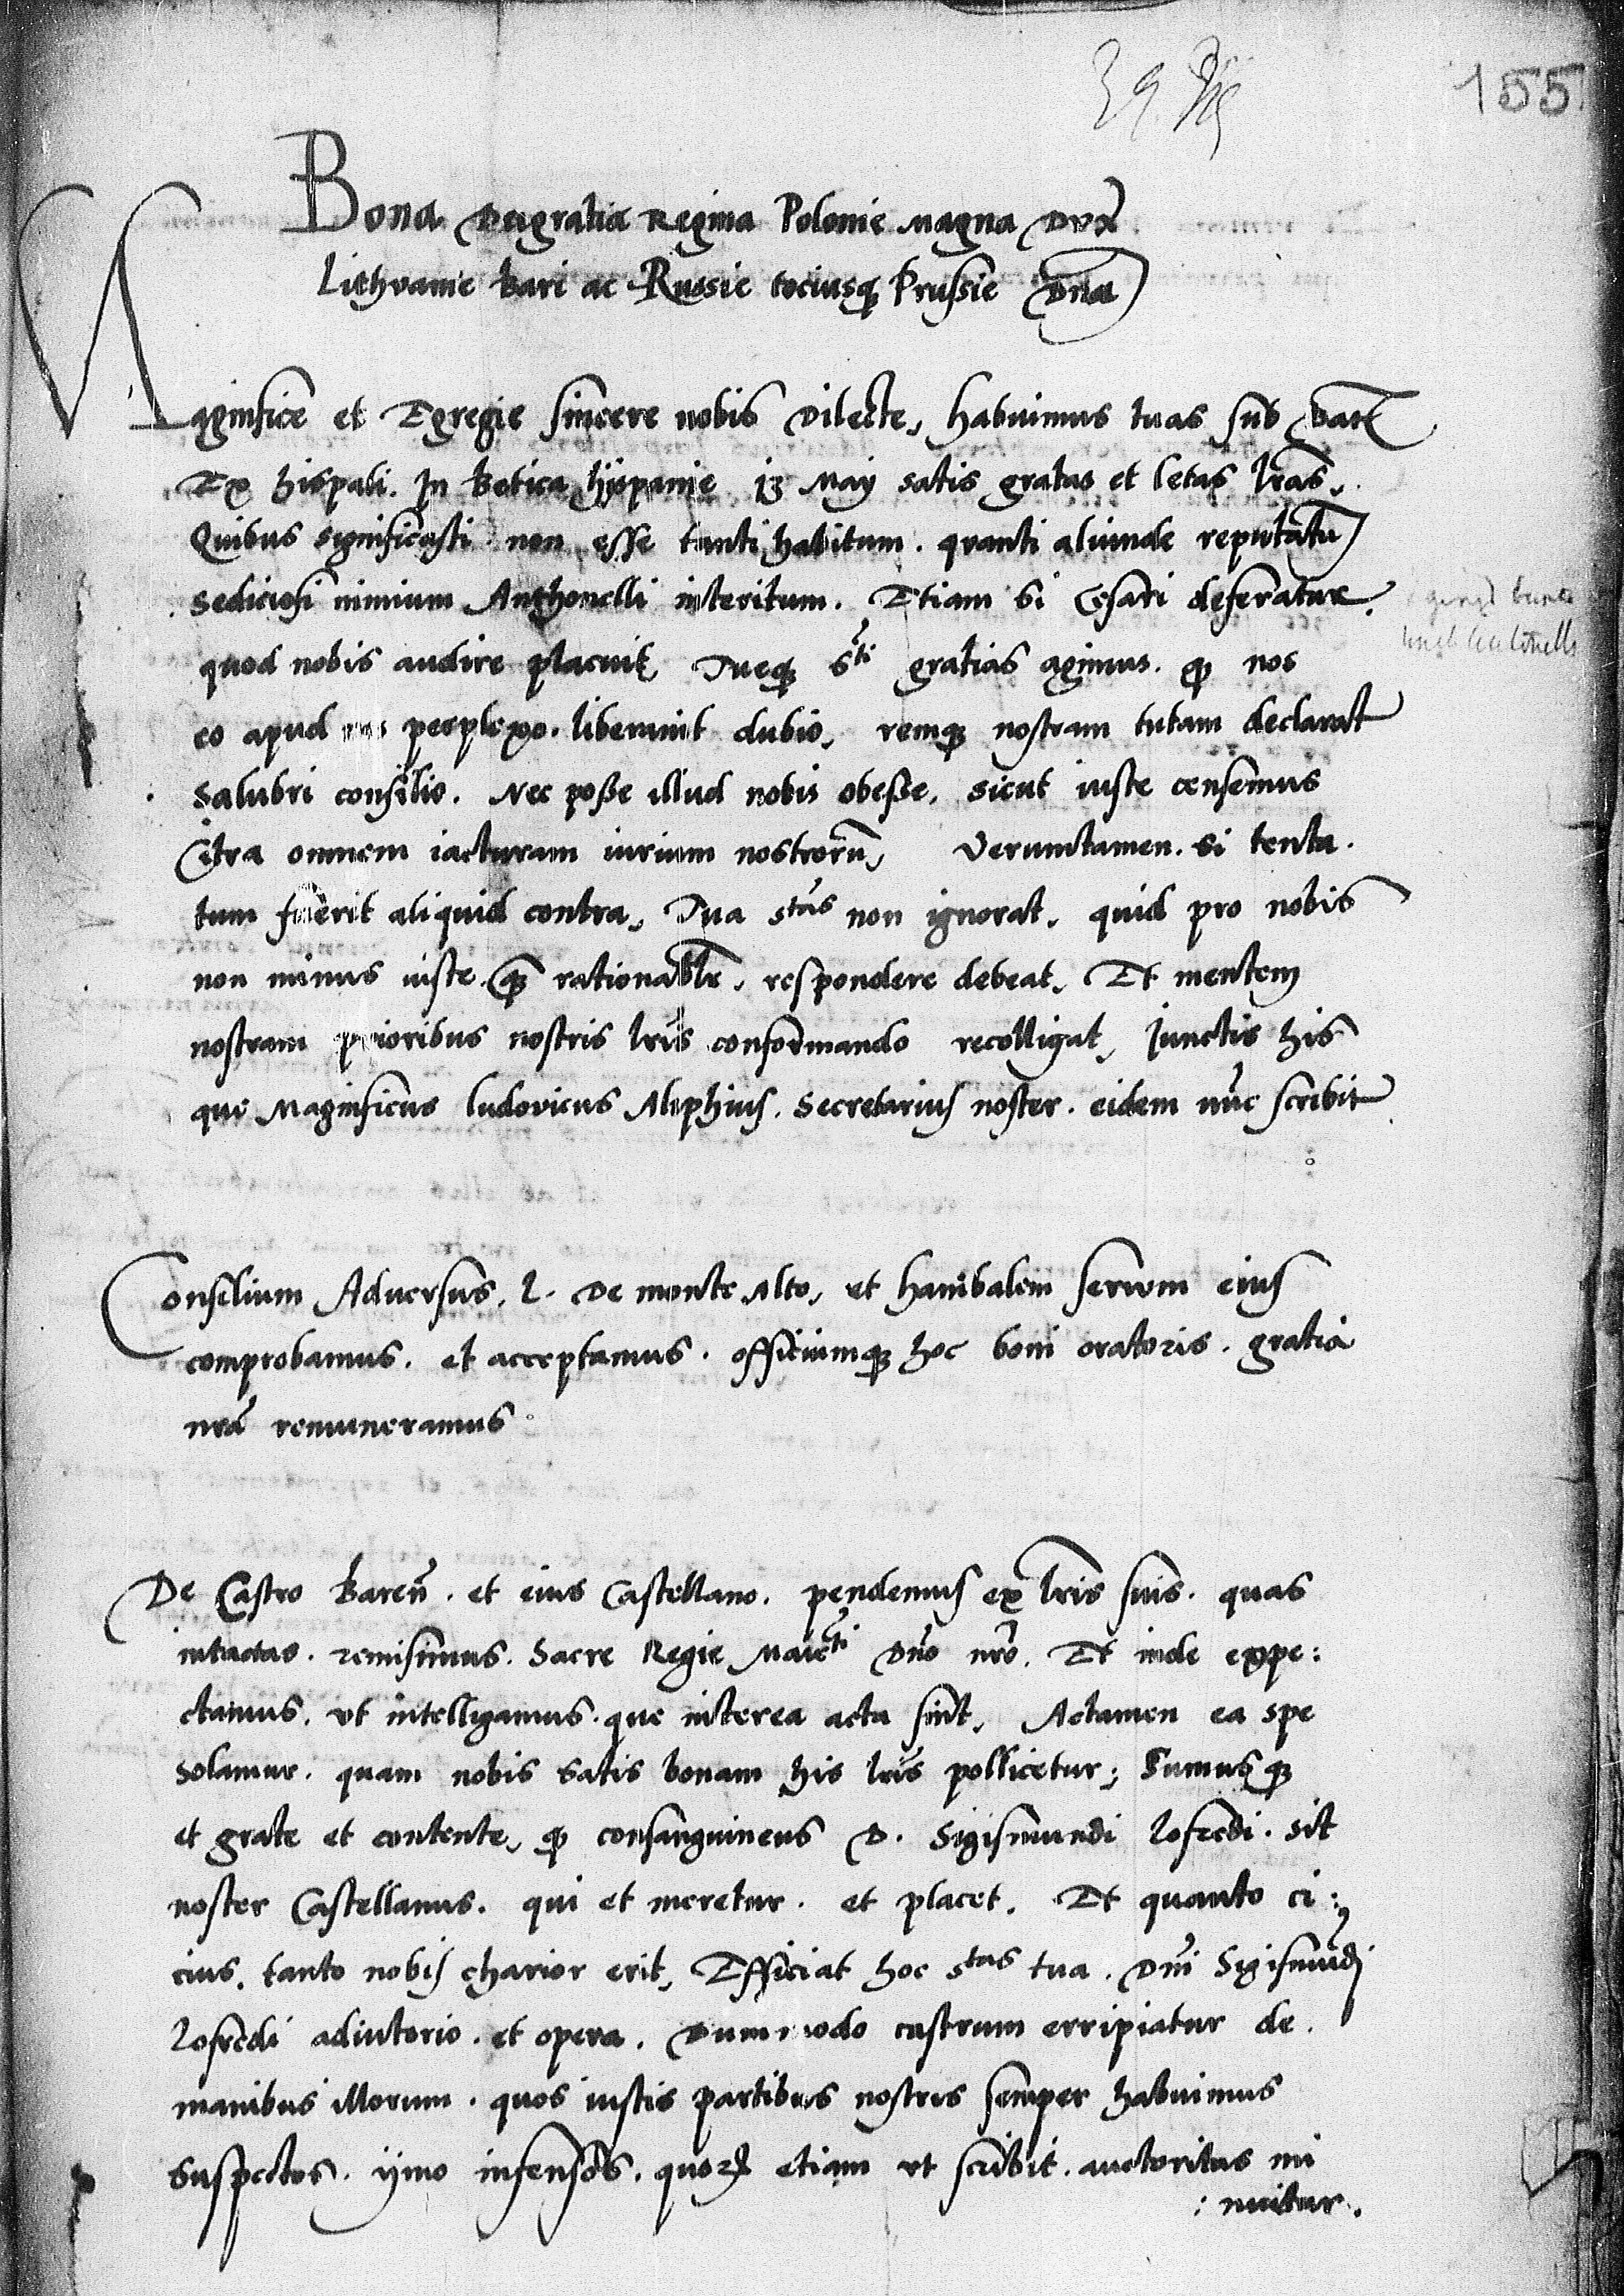 155
Bona Deigratia Regina Polonie Magna Dux
Lithvanie Bari ac Russie tociusq; Prussie Dna
Magnifice et Egregie sincere nobis Dilecte, habuimus tuas sub Dat
Ex hispali. In Betica hispanie 13 May satis gratas et letas lras,
Quibus significasti non esse tanti habitum. quanti aliunde reputatu
sediciosi nimium Anthonelli interitum. Etiam si Cesari deferatur.
quod nobis audire placuit, Tueq; Sti gratias agimus. q nos
eo apud nos perplexo. liberavit dubio, remq; nostram tutam declarat
salubri consilio. Nec posse illud nobis obesse, sicut iuste censemus
Citra omnem iacturam iurium nostroru, Verumtamen. si tenta.
tum fuerit aliquid contra, Tua stas non ignorat, quid pro nobis
non minus iuste. q rationablr. respondere debeat, Et mentem
nostram prioribus nostris lris conformando recolligat, Junctis his
que Magnificus ludovicus Aliphius. Secretarius noster. eidem nuc scribit
Consilium Adversus. l. De monte Alto, et hanibalem servum eius
comprobamus. et acceptamus. officiumq; hoc boni oratoris. gratia
nra remuneramus
De Castro Baren. et eius Castellano. pendemus ex lris suis. quas
intactas. remisimus. Sacre Regie Maiesti Dno nro. Et inde expe:
ctamus. ut intelligamus. que interea acta sint, Actamen ea spe
solamur. quam nobis satis bonam his lris pollicetur; Sumusq;
et grate et contente, q consanguineus D. Sigismundi lofredi. sit
noster Castellanus. qui et meretur. et placet. Et quanto ci:
cius. tanto nobis charior erit, Efficiat hoc stas tua. Dni Sigismudi
lofredi adiutorio. et opera. Dummodo castrum erripiatur de.
manibus illorum. quos iustis partibus nostris semper habuimus
suspectos. ymo infensos. quor etiam ut scribit. auctoritas mi
: nuitur.